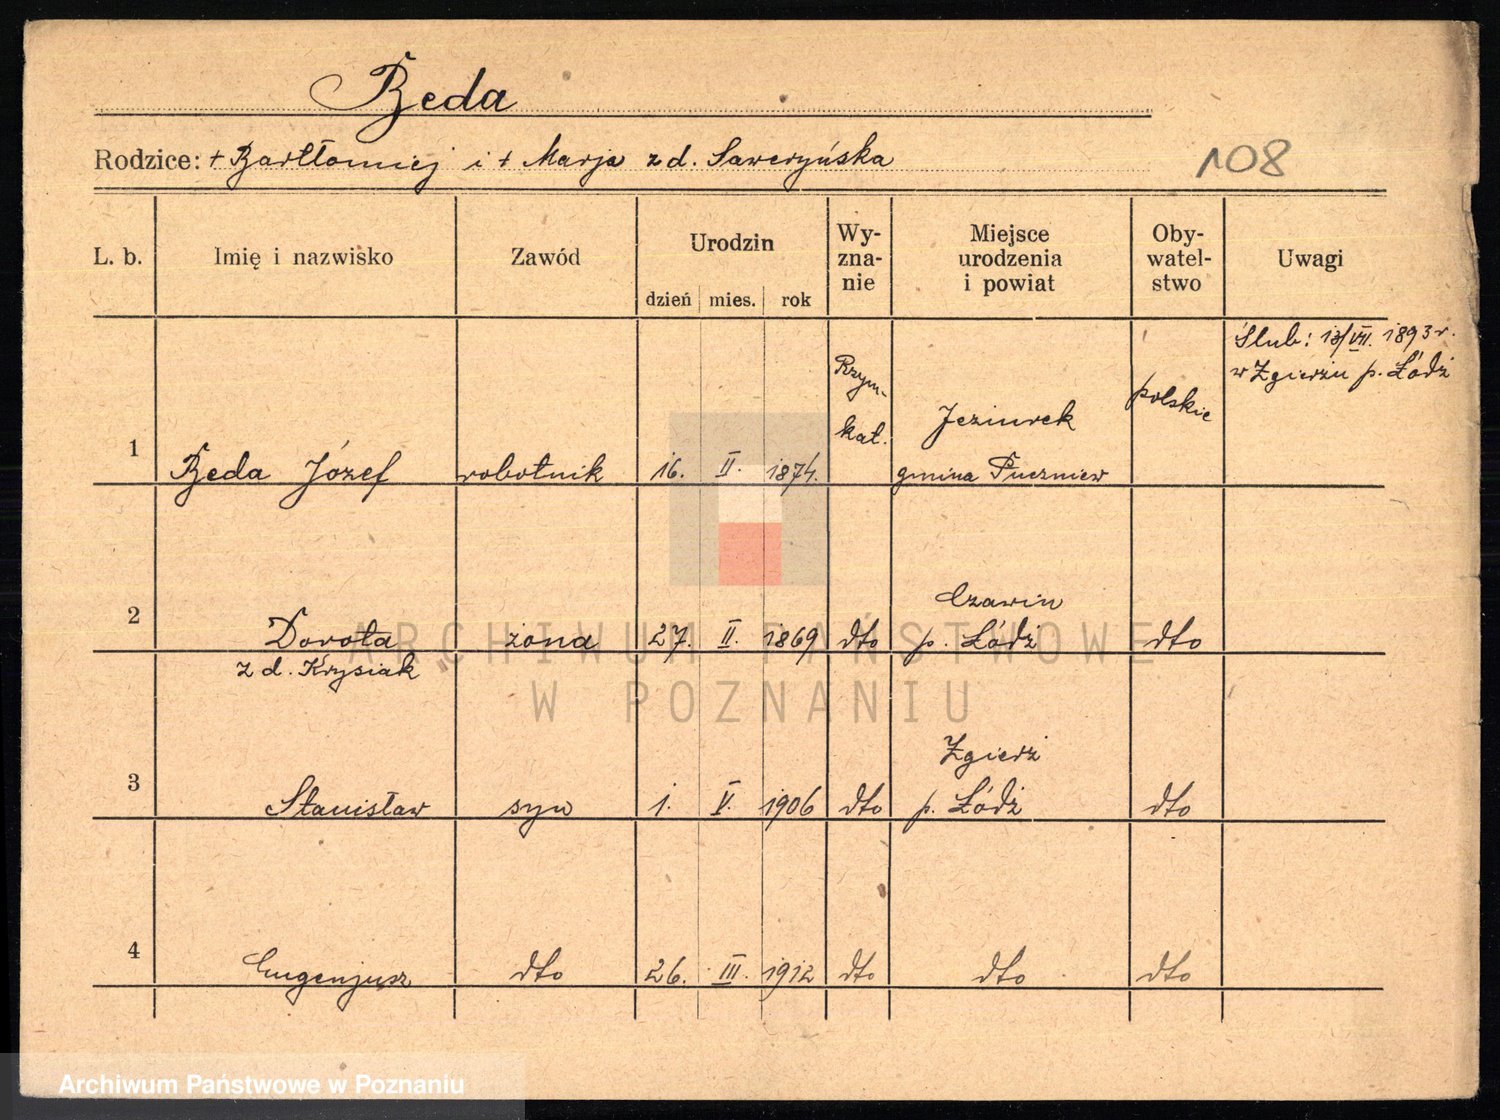 Beda
Rodzice: + Bartłomiej i + Marja z d. Saweryńska
108
L. b. Imię i nazwisko Zawód Urodzin Wy-
zna-
nie Miejsce
urodzenia
i powiat Oby-
watel-
stwo Uwagi
dzień mies. rok
Ślub: 13/VII. 1893 r.
w Zgierzu p. Łódź
1 Beda Józef robotnik 16. II. 1874. Rzym.
kat. Jeziorek
gmina Puczniew polskie
2 Dorota
z d. Krysiak żona 27. II. 1869 dto Czawin
p. Łódź dto
3 Stanisław syn 1. V. 1906 dto Zgierz
p. Łódź dto
4 Eugenjusz dto 26. III. 1912 dto dto dto
ARCHIWUM PAŃSTWOWE
W POZNANIU
Archiwum Państwowe w Poznaniu